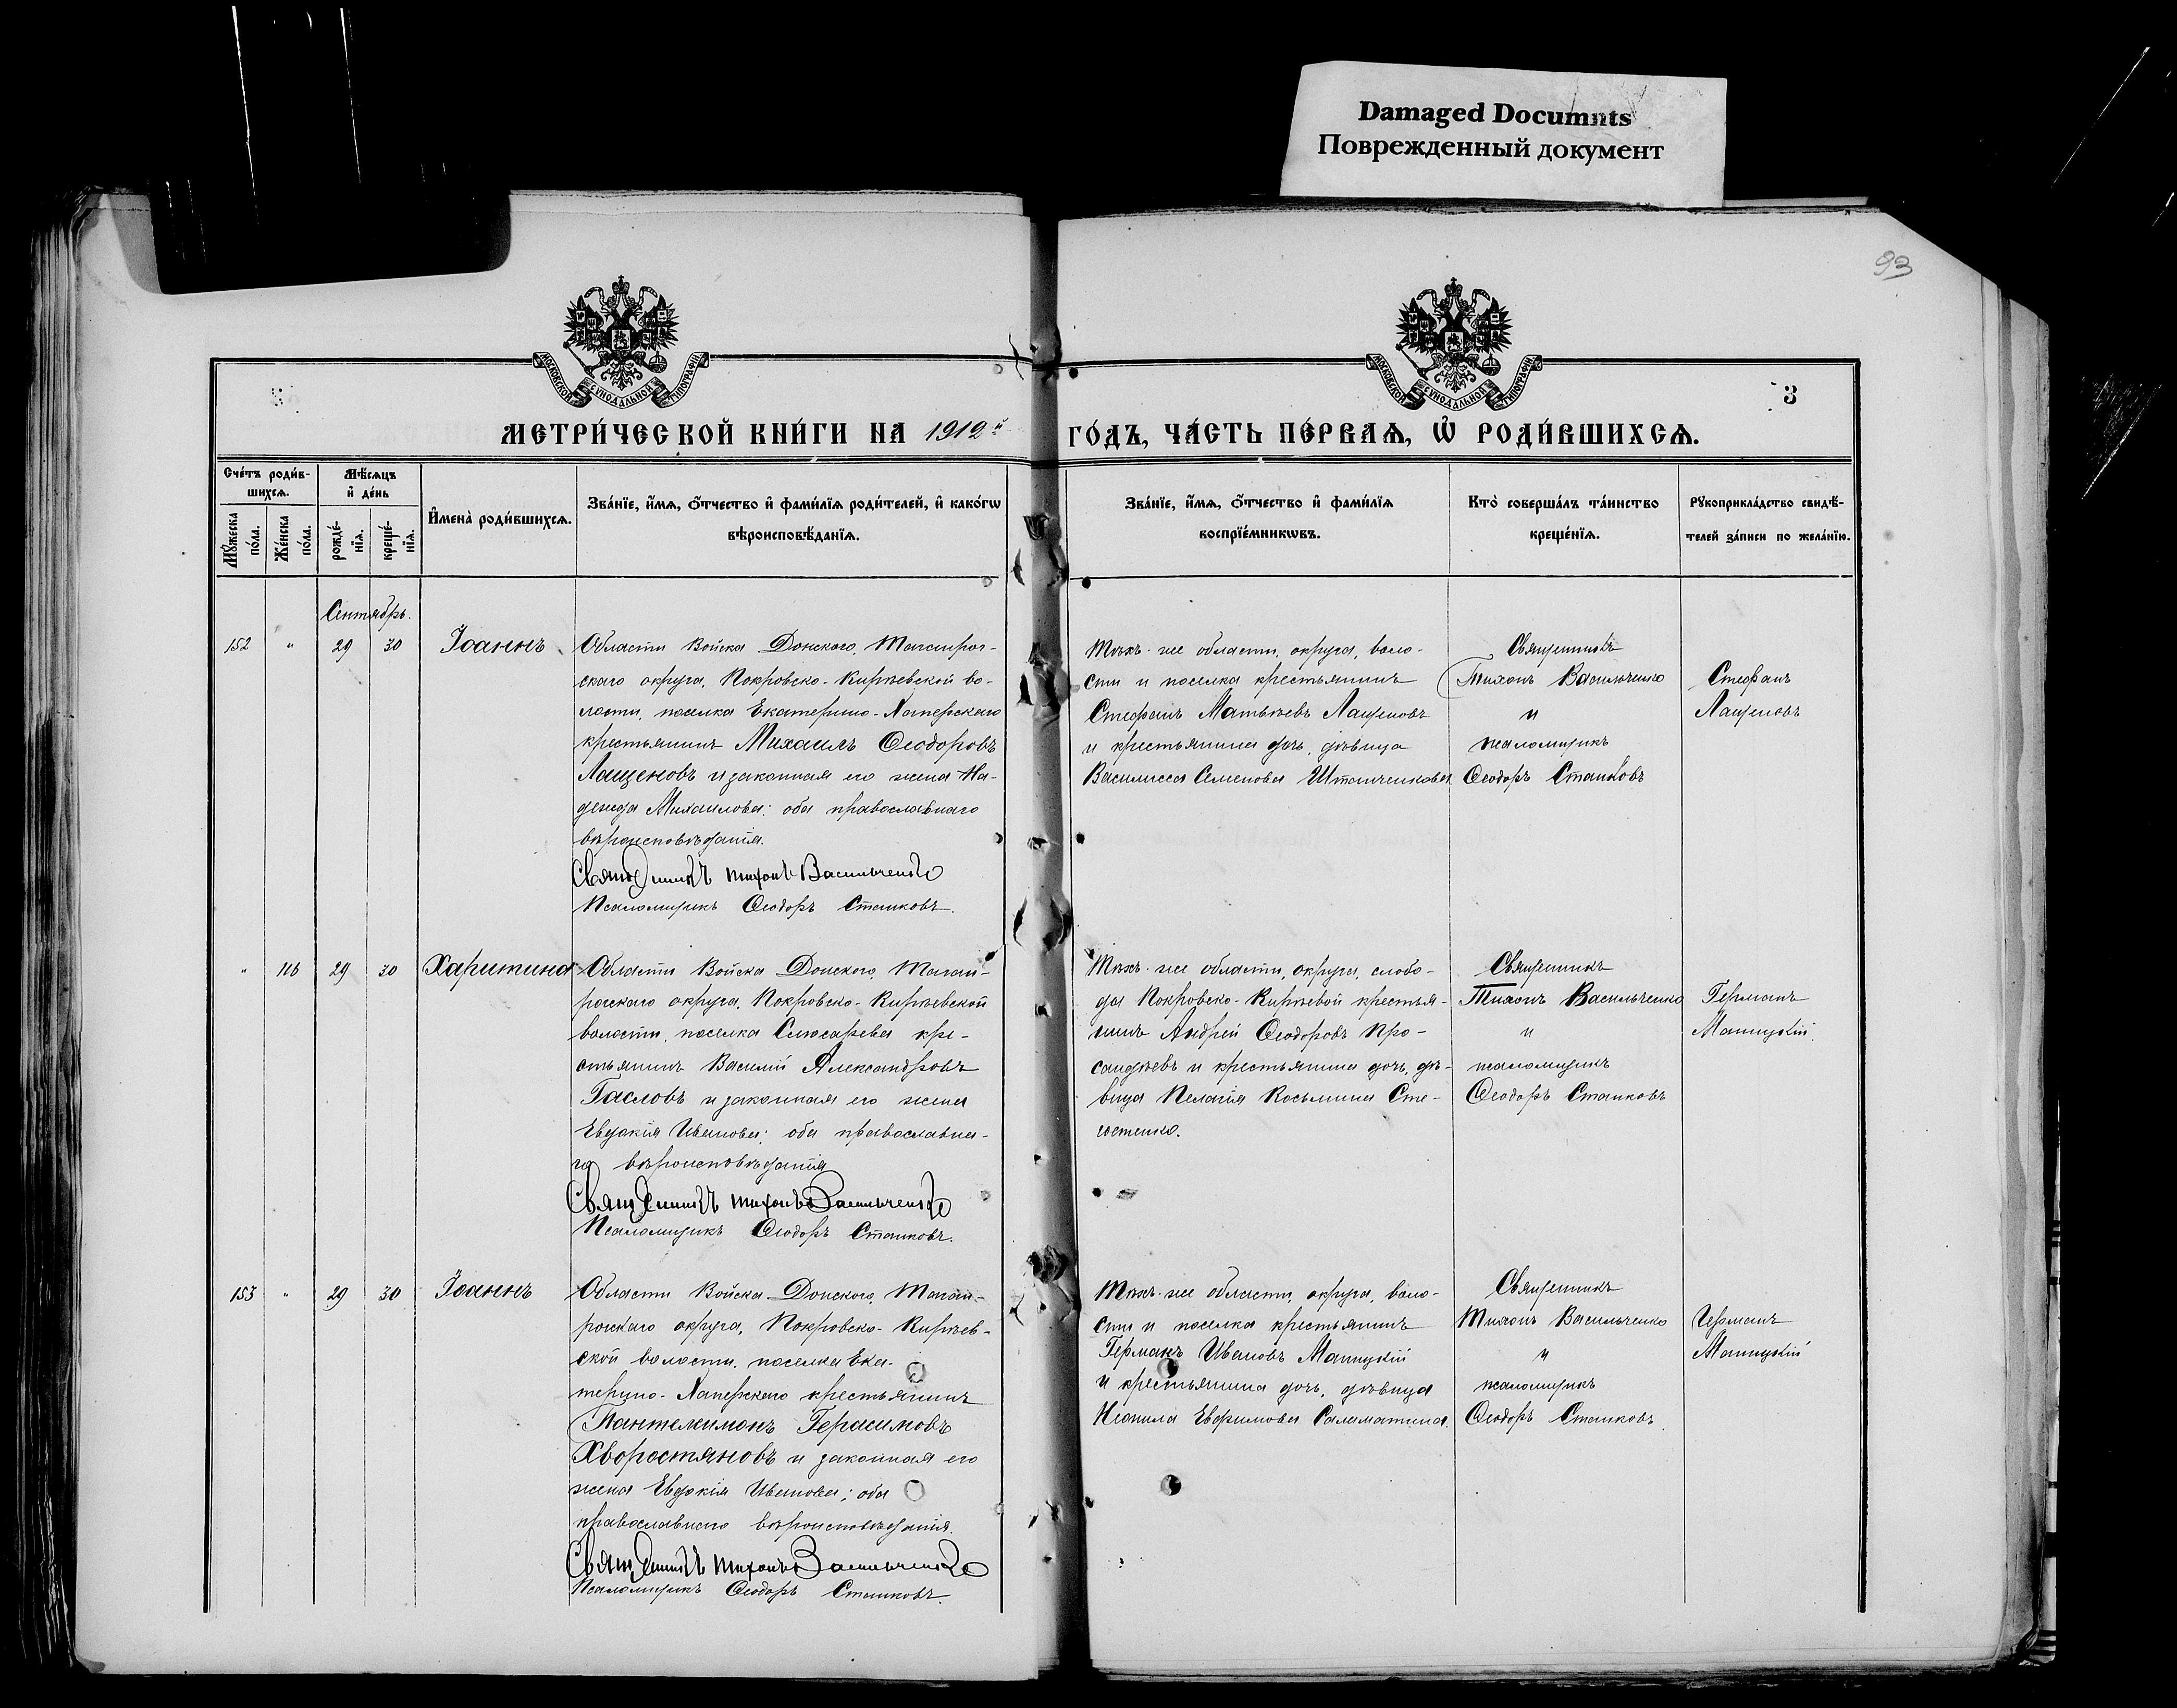 Damaged Documnts
Поврежденный документ
93
МОСКОВСКОЙ СѴНОДАЛЬНОЙ ТИПОГРАФІИ
МОСКОВСКОЙ СѴНОДАЛЬНОЙ ТИПОГРАФІИ
3
МЕТРИ́ЧЕСКОЙ КНИ́ГИ НА 1912й
ГО́ДЪ, ЧА́СТЬ ПЕ́РВАѦ, Ѡ҆ РОДИ́ВШИХСѦ.
Сче́тъ роди́в-
шихсѧ.
Мѣ́сѧцъ
и҆ де́нь
Мꙋ́жеска
по́ла.
Же́нска
по́ла.
рожде́-
нїѧ.
креще́-
нїѧ.
И҆мена̀ роди́вшихсѧ.
Зва́нїе, и҆́мѧ, ѻ҆́тчество и҆ фами́лїѧ роди́телей, и҆ како́гѡ
вѣроисповѣ́данїѧ.
Зва́нїе, и҆́мѧ, ѻ҆́тчество и҆ фами́лїѧ
воспрїе́мникѡвъ.
Кто̀ соверша́лъ та́инство
креще́нїѧ.
Рꙋкоприкла́дство свидѣ́-
телей за́писи по жела́нїю.
Сентябрь.
152 " 29 30 Іоаннъ
Области Войска Донского, Таганрог-
скаго округа, Покровско-Кирѣевской во-
лости, поселка Екатерино-Хаперскаго
крестьянинъ Михаилъ Ѳеодоровъ
Лащеновъ и законная его жена На-
дежда Михаилова; оба православнаго
вѣроисповѣданія.
Священникъ Тихонъ Васильченко
Псаломщикъ Ѳеодоръ Станковъ.
Тѣхъ-же области, округа, воло-
сти и поселка крестьянинъ
Стефанъ Матвѣевъ Лащеновъ
и крестьянина дочь, дѣвица
Василисса Семенова Штанченкова
Священникъ
Тихонъ Васильченко
и
псаломщикъ
Ѳеодоръ Станковъ
Стефанъ
Лащеновъ
" 116 29 30 Харитина
Области Войска Донского, Таган-
рогскаго округа, Покровско-Кирѣевской
волости, поселка Слюсарева кре-
стьянинъ Василій Александровъ
Гасловъ и законная его жена
Евдокія Иванова; оба православна-
го вѣроисповѣданія
Священникъ Тихонъ Васильченко
Псаломщикъ Ѳеодоръ Станковъ.
Тѣхъ-же области, округа, слобо-
да Покровско-Кирѣевой крестья-
нинъ Андрей Ѳеодоровъ Про-
сандѣевъ и крестьянина дочь, дѣ-
вица Пелагія Косьмина Сте-
Священникъ
Тихонъ Васильченко
и
псаломщикъ
Ѳеодоръ Станковъ
Германъ
Маницкій.
153 " 29 30 Іоаннъ
Области Войска Донского, Таган-
рогскаго округа, Покровско-Кирѣев-
ской волости, поселка Ека-
терино-Хаперскаго крестьянинъ
Пантелеимонъ Герасимовъ
Хворостяновъ и законная его
жена Евдокія Иванова; оба
православнаго вѣроисповѣданія.
Священникъ Тихонъ Васильченко
Псаломщикъ Ѳеодоръ Станковъ.
Тѣхъ-же области, округа, воло-
сти и поселка крестьянинъ
Германъ Ивановъ Маницкій
и крестьянина дочь, дѣвица
Неонила Евфимова Саламатина.
Священникъ
Тихонъ Васильченко
и
псаломщикъ
Ѳеодоръ Станковъ.
Германъ
Маницкій